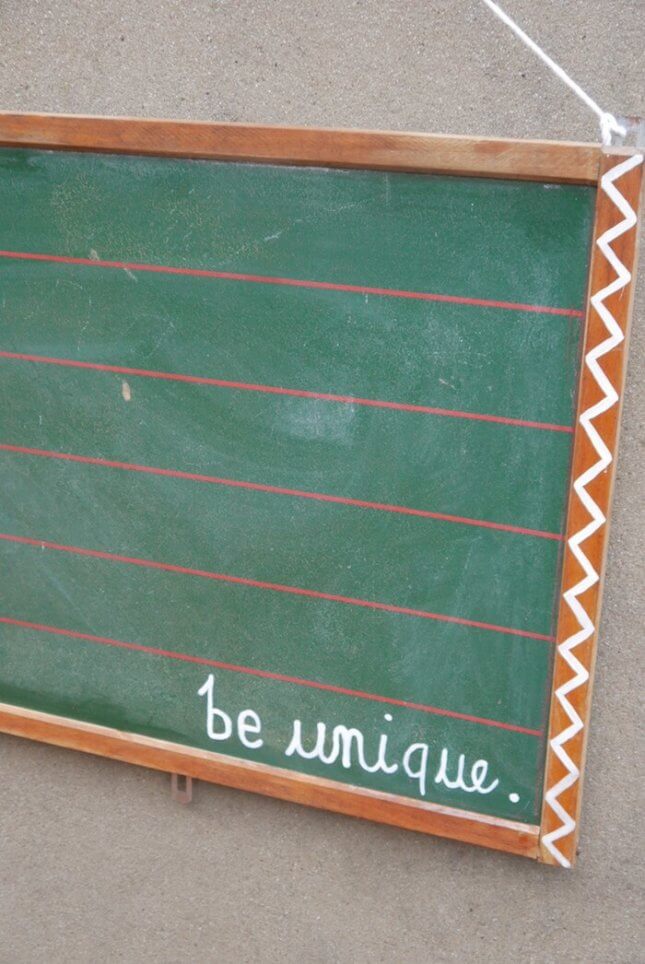 be unique.